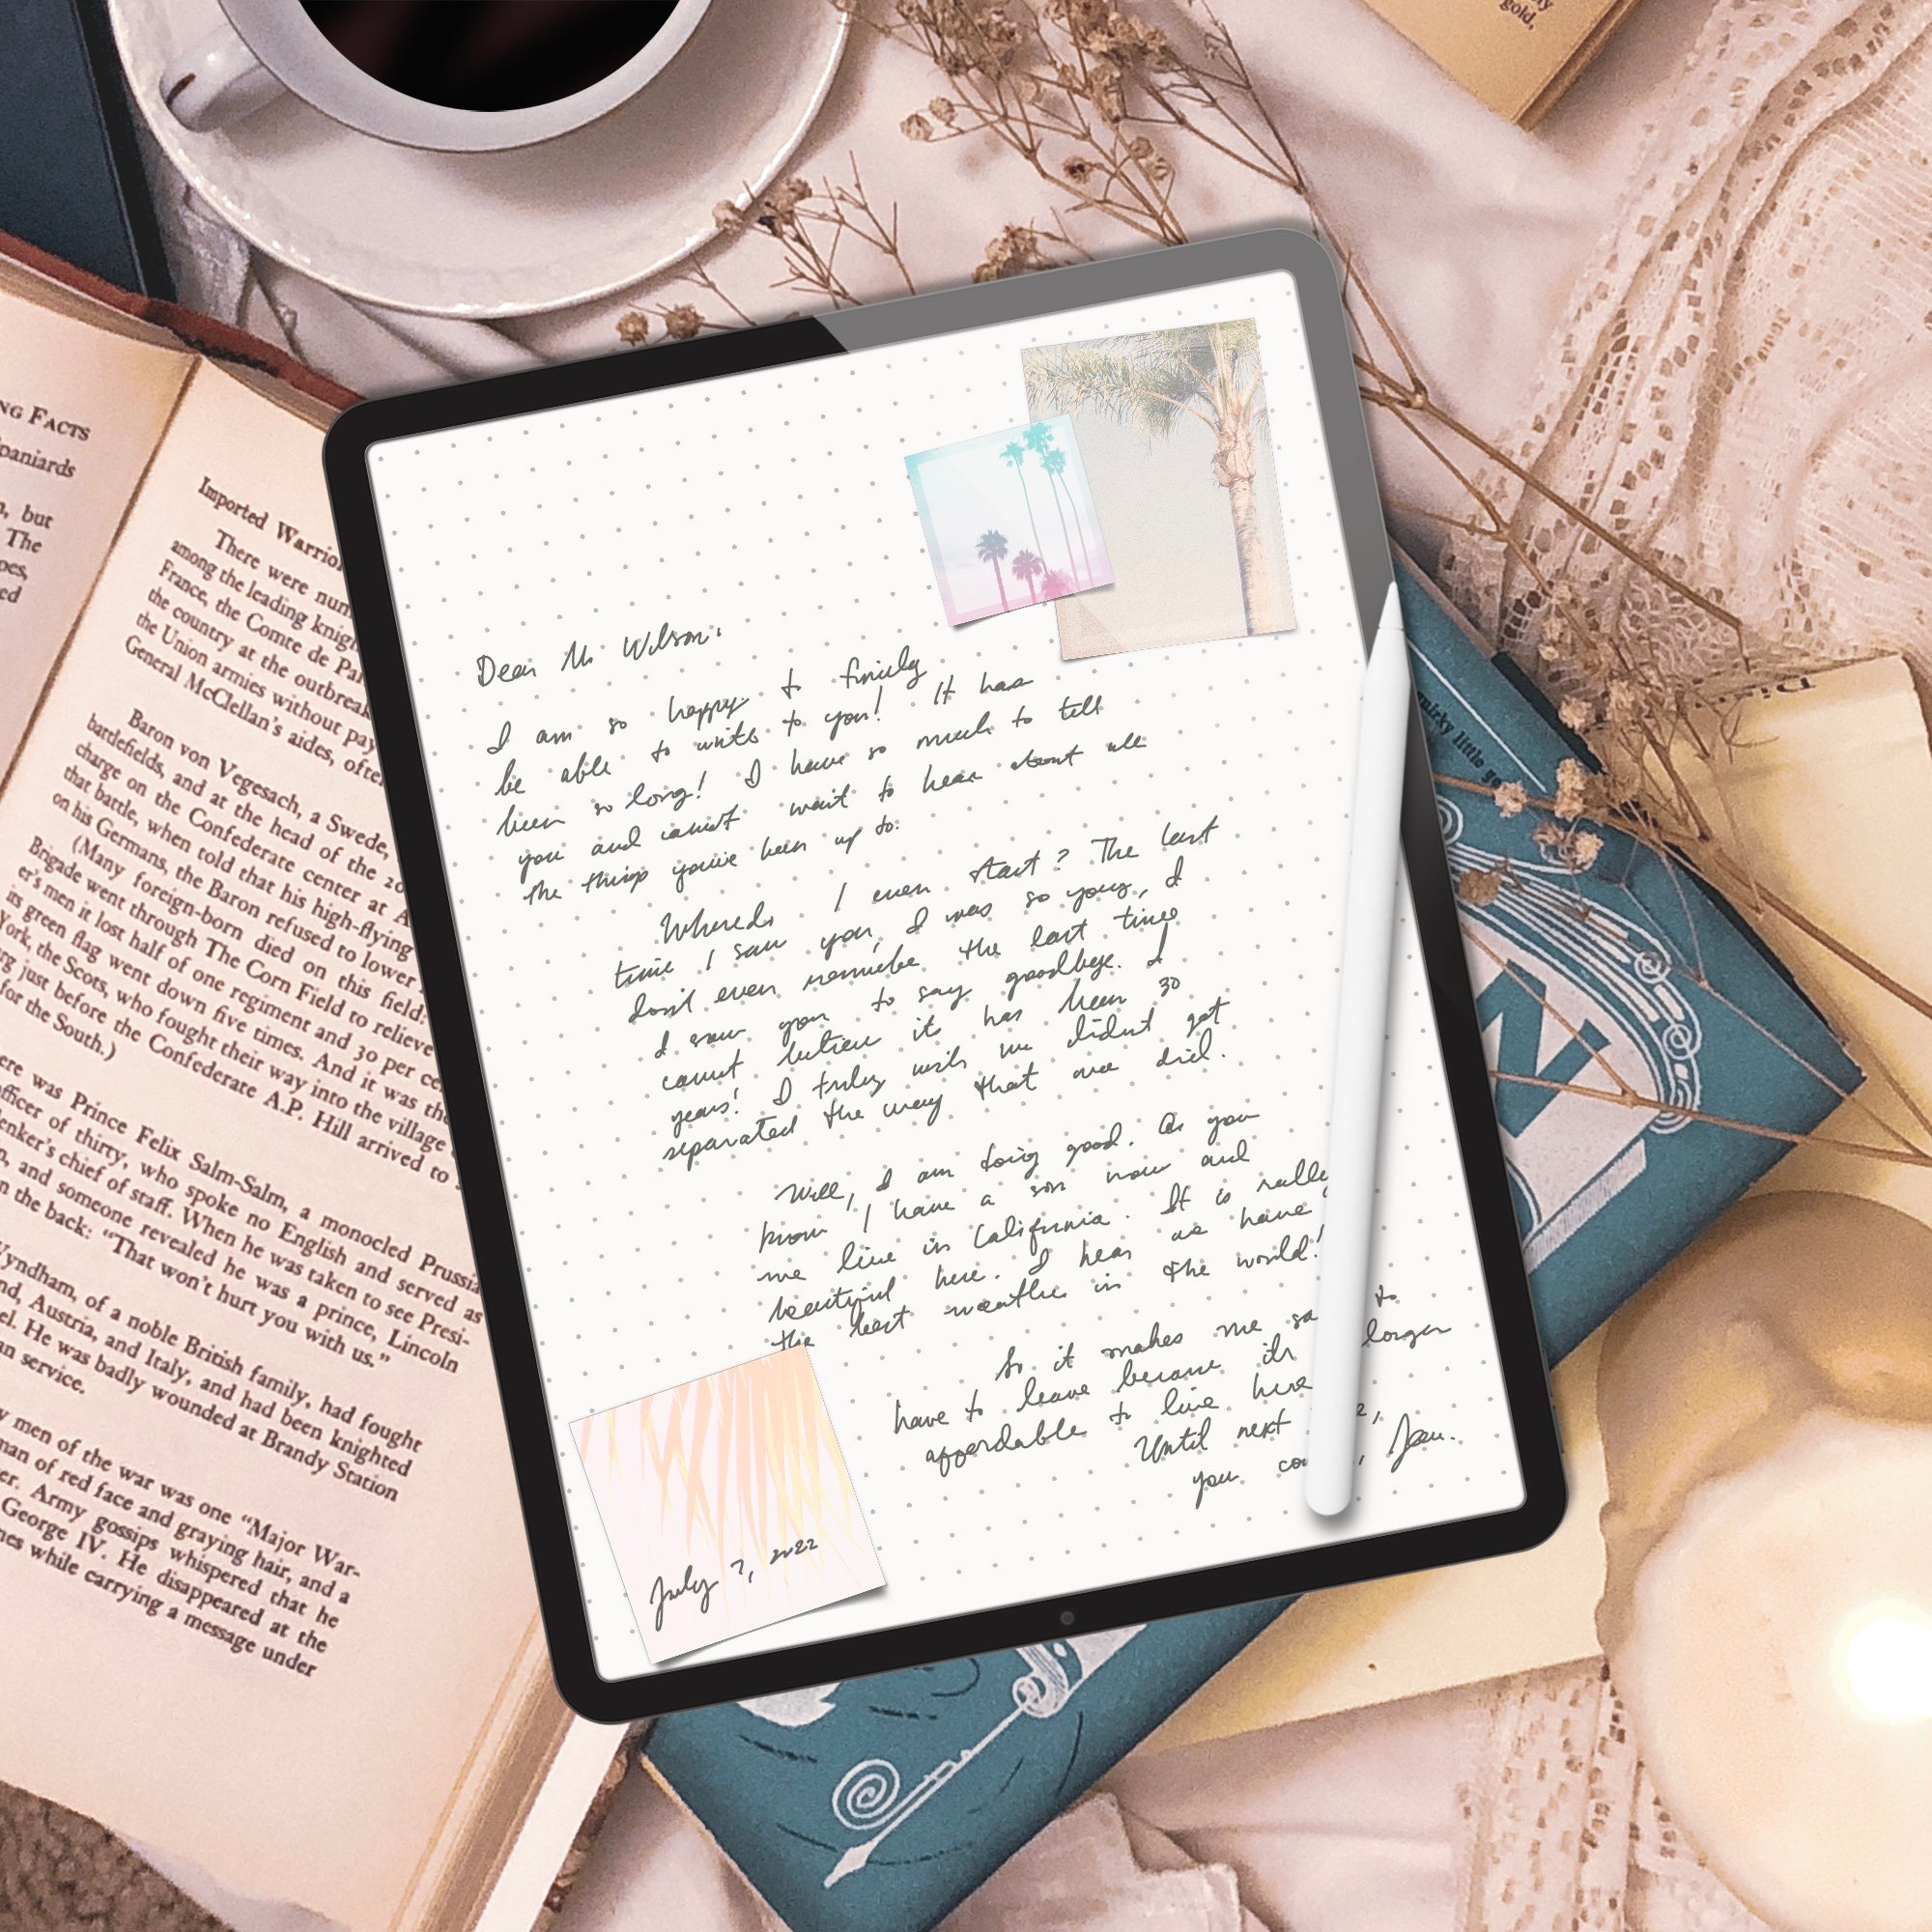 gold,
NG FACTS
paniards
, but
The
pes,
ed
Imported Warrio
There were num
among the leading knigh
France, the Comte de Par
the country at the outbreak
the Union armies without pay
General McClellan's aides, ofte
Baron von Vegesach, a Swede,
battlefields, and at the head of the 20
charge on the Confederate center at A
that battle, when told that his high-flying
on his Germans, the Baron refused to lower
(Many foreign-born died on this field:
Brigade went through The Corn Field to relieve
er's men it lost half of one regiment and 30 per ce
its green flag went down five times. And it was the
York, the Scots, who fought their way into the village
rg just before the Confederate A.P. Hill arrived to
for the South.)
ere was Prince Felix Salm-Salm, a monocled Prussia
fficer of thirty, who spoke no English and served as
enker's chief of staff. When he was taken to see Presi-
n, and someone revealed he was a prince, Lincoln
n the back: "That won't hurt you with us."
Wyndham, of a noble British family, had fought
nd, Austria, and Italy, and had been knighted
el. He was badly wounded at Brandy Station
an service.
y men of the war was one "Major War-
man of red face and graying hair, and a
er. Army gossips whispered that he
George IV. He disappeared at the
nes while carrying a message under
Dear Mr Wilson,
I am so happy to finally
be able to write to you! It has
been so long! I have so much to tell
you and cannot wait to hear about all
the things you've been up to.
Where do I even start? The last
time I saw you, I was so young, I
don't even remember the last time
I saw you to say goodbye. I
cannot believe it has been 30
years! I truly wish we didn't get
separated the way that we did.
Well, I am doing good. As you
know I have a son now and
we live in California. It is really
beautiful here. I hear we have
the best weather in the world!
So it makes me sa to
have to leave because its longer
affordable to live here
Until next e,
you co , Jean.
July 7, 2022
quirky little go
N